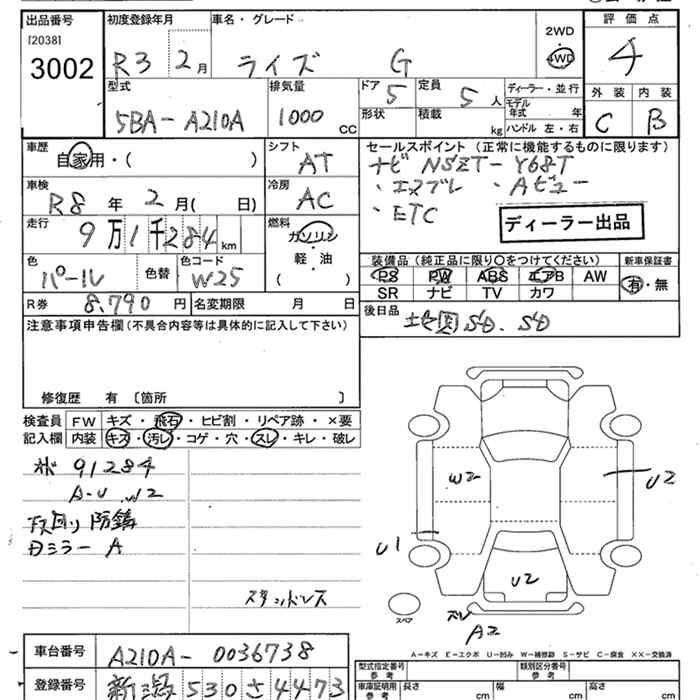 出品番号 初度登録年月 車名・グレード 2WD 評価点
[2038] 4WD
3002 R3 2月 ライズ G 4
型式 排気量 ドア 定員 ディーラー・並行 外装 内装
5BA-A210A 1000cc 5 5人 モデル年式 年
形状 積載 kg ハンドル 左・右 C B
車歴 自家用・( ) シフト AT セールスポイント (正常に機能するものに限ります)
ナビ NSZT-Y68T
車検 R8年2月( 日) 冷房 AC ・エスプレ ・Aビュー
・ETC
走行 9万1千284km 燃料 ガソリン・軽油 ( ) ディーラー出品
色 パール 色替 色コード W25 装備品 (純正品に限り○をつけてください) 新車保証書
PS PW ABS エアB AW 有・無
SR ナビ TV カワ
R券 8,790円 名変期限 月 日 後日品 地図SD、SD
注意事項申告欄 (不具合内容等は具体的に記入して下さい)
修復歴 有 〔箇所 〕
検査員 FW キズ・飛石・ヒビ割・リペア跡・×要
記入欄 内装 キズ・汚レ・コゲ・穴・スレ・キレ・破レ
91284
A・U W2
下回り防錆
Dミラー A
W2
U2
U1
U2
スレ
A2
スペア
スタッドレス
A-キズ E-エクボ U-凹み W-補修跡 S-サビ C-腐食 XX-交換済
車台番号 A210A-0036738
型式指定番号 参考 類別区分番号 参考
登録番号 新潟530さ4473
車庫証明用 参考 長さ cm 幅 cm 高さ cm